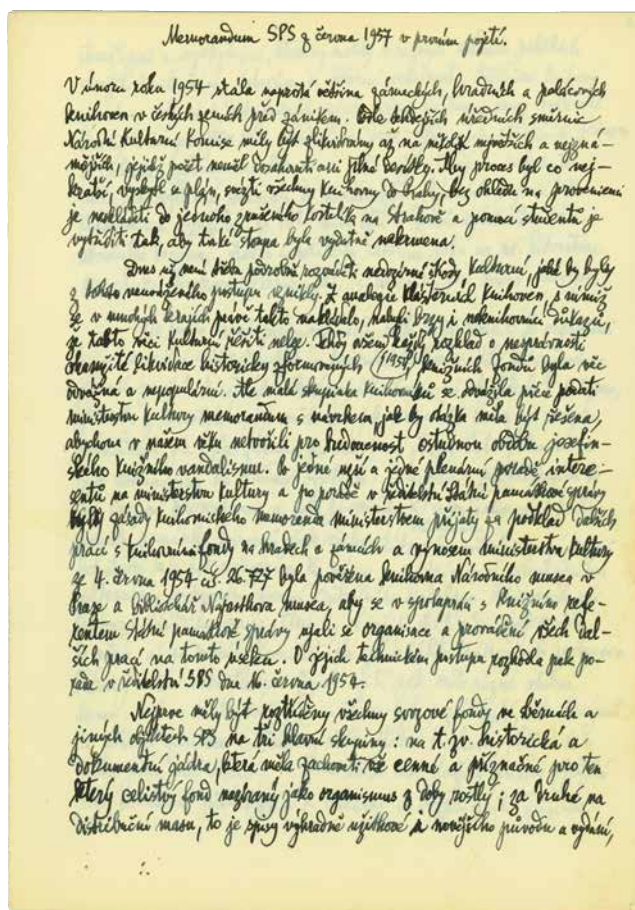 Memorandum SPS z června 1957 v prvním pojetí.
V únoru roku 1954 stála naprostá většina zámeckých, hradních a palácových
knihoven v českých zemích před zánikem. Dle tehdejších úředních směrnic
Národní Kulturní Komise měly být zlikvidovány až na několik největších a nejzná-
mějších, jejichž počet neměl dosahovati ani plné desítky. Aby proces byl co nej-
kratší, vyskytl se plán, svézti všechny knihovny do Prahy, bez ohledu na provenienci
je naskládati do jednoho zrušeného kostelíka na Strahově a pomocí studentů je
vytříditi tak, aby
Dnes už není třeba podrobně rozváděti nedozírné škody kulturní, jaké by byly
z tohoto neuváženého postupu vznikly. Z analogie klášterních knihoven, s nimiž
se v mnohých krajích právě takto nakládalo, nabyli brzy i neknihovníci důkazů,
že takto věci kulturní řešiti nelze. Tehdy ovšem každý rozklad o nesprávnosti
okamžité likvidace historicky zformovaných (1954) knižních fondů byla věc
odvážná a nepopulární. Ale malá skupinka knihovníků se odvážila přece podati
ministerstvu kultury memorandum s návrhem, jak by otázka měla být řešena,
abychom v našem věku netvořili pro budoucnost ostudnou obdobu josefin-
ského knižního vandalismu. Po jedné užší a jedné plenární poradě intere-
sentů na ministerstvu kultury a po poradě v ředitelství Státní památkové správy
byly zásady knihovnického memoranda ministerstvem přijaty za podklad dalších
prací s knihovními fondy na hradech a zámcích a výnosem ministerstva kultury
ze 4. června 1954 čís. 26.727 byla pověřena knihovna Národního musea v
Praze a bibliothekář Náprstkova musea, aby se v spolupráci s knižním refe-
rentem Státní památkové správy ujali se organisace a provádění všech dal-
ších prací na tomto úseku. O jejich technickém postupu rozhodla pak po-
rada v ředitelství SPS dne 16. června 1954.
Nejprve měly být roztříděny všechny svozové fondy ve sběrnách a
jiných objektech SPS na tři hlavní skupiny: na t. zv. historická a
dokumentní jádra, která měla zachovati vše cenné a příznačné pro ten
který celistvý fond nazíraný jako organismus z doby rostlý; za druhé na
distribuční masu, to je spisy výhradně užitkové a novějšího původu a vydání,